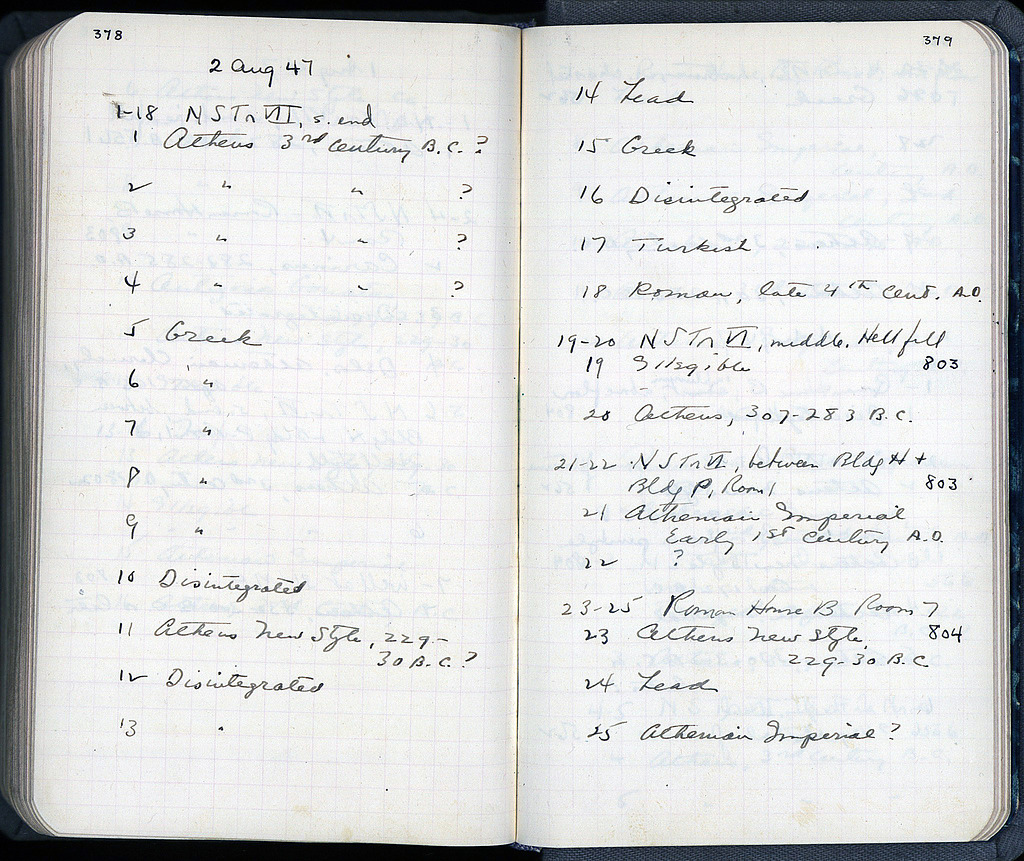 378
2 Aug 47
1-18 N S Tr VII, s. end
1 Athens 3rd century B.C. ?
2 " " ?
3 " " ?
4 " " ?
5 Greek
6 "
7 "
8 "
9 "
10 Disintegrated
11 Athens New Style, 229-
30 B.C. ?
12 Disintegrated
13 "
379
14 Lead
15 Greek
16 Disintegrated
17 Turkish
18 Roman, late 4th cent. A.D.
19-20 N S Tr VI, middle, Hell fill
19 Illegible 803
20 Athens, 307-283 B.C.
21-22 N S Tr VI, between Bldg H +
Bldg P, Room 1 803
21 Athenian Imperial
Early 1st century A.D.
22 ?
23-25 Roman House B Room 7
23 Athens New Style 804
229-30 B.C.
24 Lead
25 Athenian Imperial ?